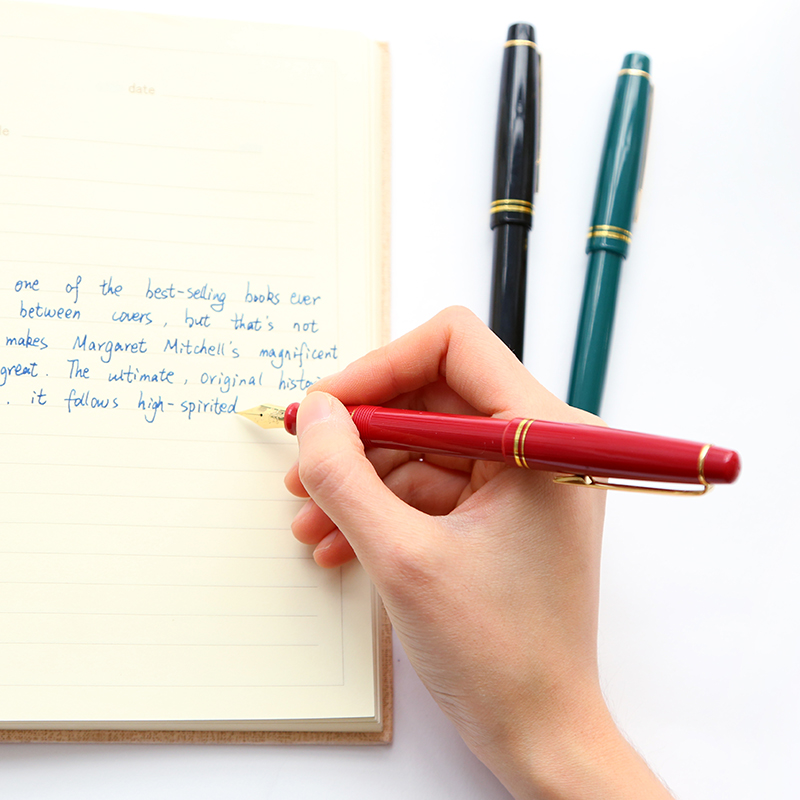 date
one of the best-selling books ever
between covers, but that's not
makes Margaret Mitchell's magnificent
great. The ultimate, original
. it follows high-spirited